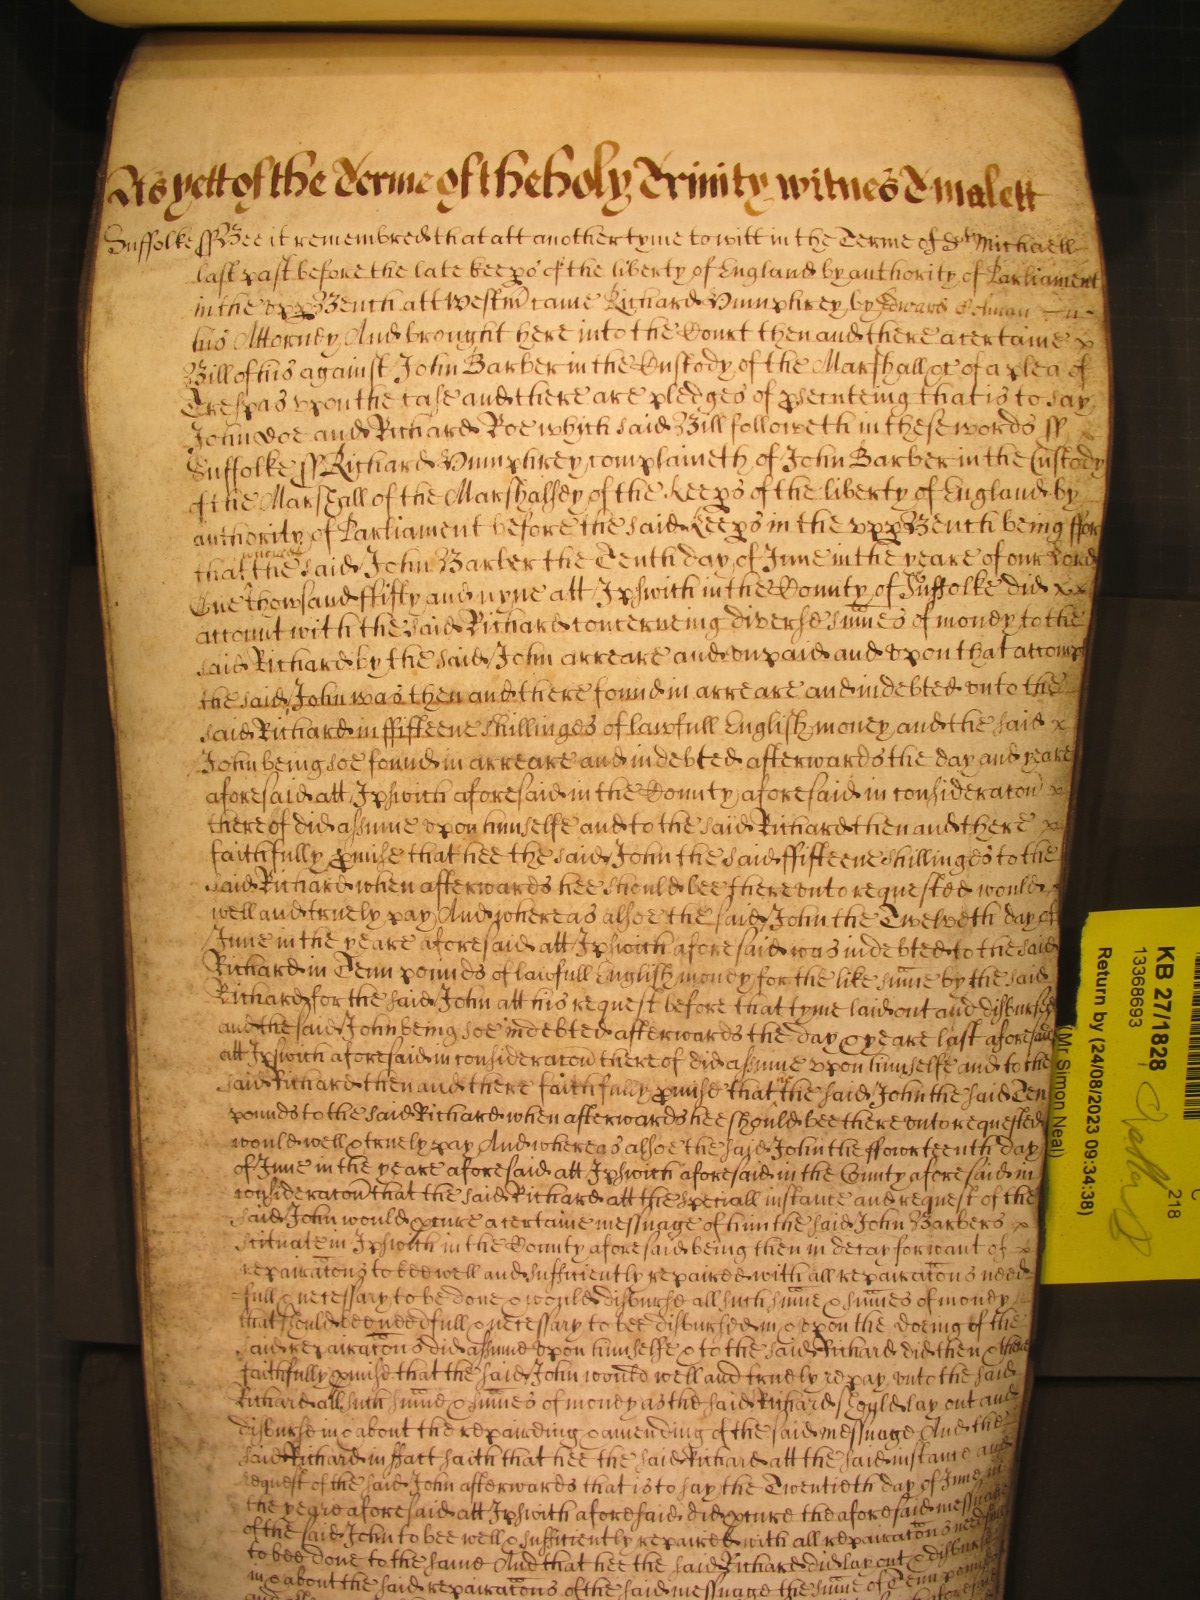 As yett of the Terme of the holy Trinity witnes T Malett
Suffolke ss Bee it remembred that att another tyme to witt in the Terme of St Michaell
last past before the late keeps of the liberty of England by authority of Parliament
in the upp Bench att Westm came Richard Humphrey by Edward
his Attorney And brought here into the Court then and there a certaine
Bill of his against John Barber in the Custody of the Marshall &c of a plea of
Trespas upon the case and there are pledges of psecuteing that is to say
John Doe and Richard Roe which said Bill followeth in these words ss
Suffolke ss Richard Humphrey complaineth of John Barber in the Custody
of the Marshall of the Marshalsey of the keeps of the liberty of England by
authority of Parliament before the said keeps in the upp Bench being ffor
that whereas the said John Barber the Tenth day of June in the yeare of our Lord
One thowsand ffifty and nyne att Ipswich in the County of Suffolke did
account with the said Richard concerneing diverse sumes of money to the
said Richard by the said John arreare and unpaid and upon that accompt
the said John was then and there found in arreare and indebted unto the
said Richard in ffifteene shillinges of lawfull English money and the said
John being soe found in arreare and indebted afterwards the day and yeare
aforesaid att Ipswich aforesaid in the County aforesaid in consideracon
thereof did assume upon himselfe and to the said Richard then and there
faithfully pmise that hee the said John the said ffifteene shillinges to the
said Richard when afterwards hee should bee thereunto requested would
well and truely pay And whereas alsoe the said John the Twelveth day of
June in the yeare aforesaid att Ipswich aforesaid was indebted to the said
Richard in Tenn pounds of lawfull English money for the like sume by the said
Richard for the said John att his request before that tyme laid out and disbursed
and the said John being soe indebted afterwards the day & yeare last aforesaid
att Ipswich aforesaid in consideracon thereof did assume upon himselfe and to the
said Richard then and there faithfully pmise that he the said John the said Ten
pounds to the said Richard when afterwards hee should bee thereunto requested
would well & truely pay And whereas alsoe the said John the ffowrteenth day
of June in the yeare aforesaid att Ipswich aforesaid in the County aforesaid in
consideracon that the said Richard att the speciall instance and request of the
said John would pcure a certaine messuage of him the said John Barbers
scituate in Ipswich in the County aforesaid being then in decay for want of
repairacons to bee well and sufficiently repaired with all repairacons need
full & necessary to be done & would disburse all such sume & sumes of money
that should bee needfull & necessary to bee disbursed in & upon the doeing of the
said repairacons did assume upon himselfe & to the said Richard did then & there
faithfully pmise that the said John would well and truely repay unto the said
Richard all such sume & sumes of money as the said Richard should lay out and
disburse in & about the repaireing & amending of the said messuage And the
said Richard in ffact saith that hee the said Richard att the said instance and
request of the said John afterwards that is to say the Twentieth day of June in
the yeare aforesaid att Ipswich aforesaid did pcure the aforesaid messuage
of the said John to bee well & sufficiently repaired with all repairacons needfull
to bee done to the same And that hee the said Richard did lay out & disburse
in & about the said repairacons of the said messuage the sume of Tenn pounds
KB 27/1828
13368693
218
Return by (24/08/2023 09:34:38)
(Mr Simon Neal)